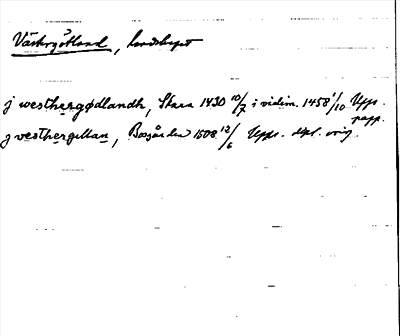 Västergötland, landskapet
j westhergødlandh, Skara 1430 10/7 i vidim. 1458 1/10 Upps. papp.
j vesthergillan, Borgården 1508 12/6 Upps. dipl. orig.